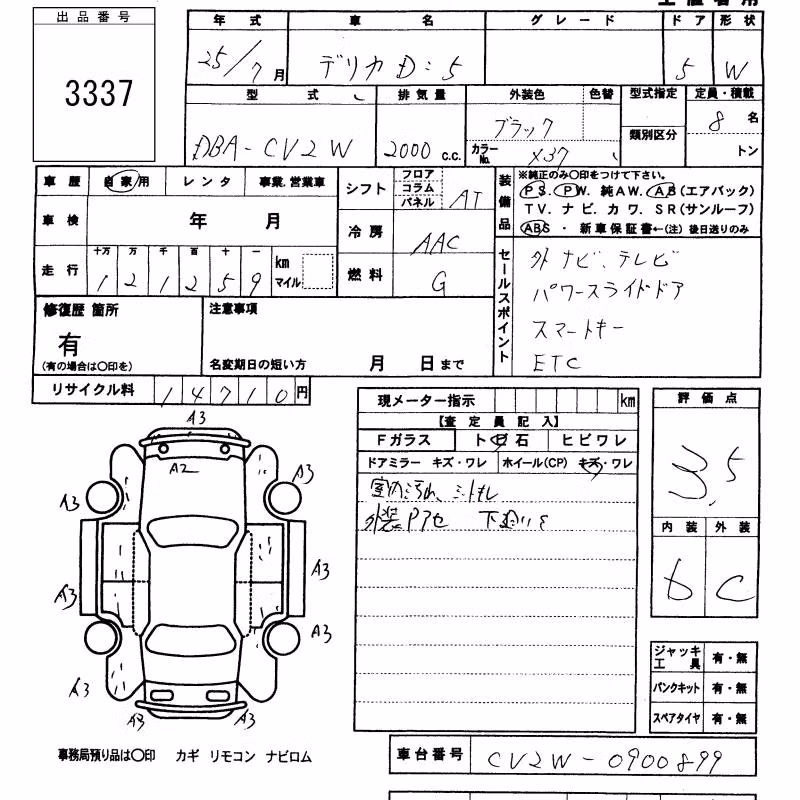 出品番号
3337
年式 車名 グレード ドア 形状
25/7月 デリカD:5 5 W
型式 排気量 外装色 色替 型式指定 定員・積載
DBA-CV2W 2000 c.c. ブラック カラーNo. X37 類別区分 8名 トン
車歴 自家用 レンタ 事業.営業車
車検 年 月
走行 十万 万 千 百 十 一
1 2 1 2 5 9 km マイル
シフト フロア コラム パネル AT
冷房 AAC
燃料 G
装備品
※純正のみ〇印をつけて下さい。
P S. P W. 純AW. A B (エアバック)
TV. ナビ. カワ. SR(サンルーフ)
ABS ・ 新車保証書←(注) 後日送りのみ
セールスポイント
外 ナビ、テレビ
パワースライドドア
スマートキー
ETC
修復歴 箇所
有
(有の場合は〇印を)
注意事項
名変期日の短い方 月 日まで
リサイクル料 14710円
現メーター指示 km
【査定員記入】
Fガラス ト 石 ヒビワレ
ドアミラー キズ・ワレ ホイール(CP) キズ・ワレ
室内汚れ、
外装
評価点
3.5
内装 外装
b C
A3
A2
A3 A3
A3 A3
A3
A3 A3
A3
ジャッキ工具 有・無
パンクキット 有・無
スペアタイヤ 有・無
事務局預り品は〇印 カギ リモコン ナビロム
車台番号 CV2W-0900899